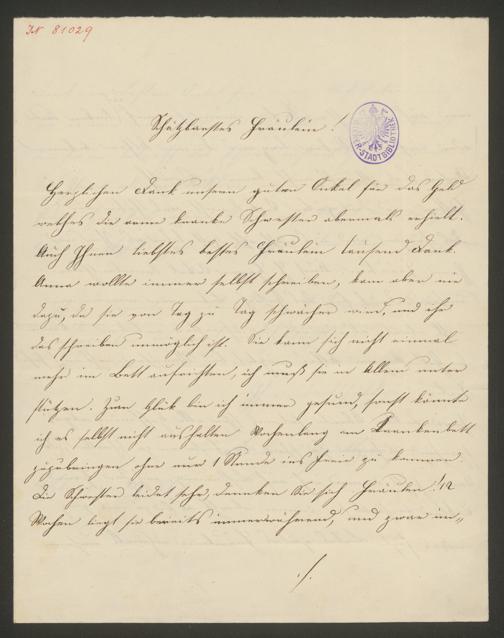 IN 81029
Schätzbarstes Fräulein!
R-STADTBIBLIOTHEK
Herzlichen Dank unserm guten Onkel für das Geld
welches die arme kranke Schwester abermals erhielt.
Auch Ihnen liebstes bestes Fräulein tausend Dank.
Anna wollte immer selbst schreiben, kam aber nie
dazu, da sie von Tag zu Tag schwächer wird, und ihr
das schreiben unmöglich ist. Sie kann sich nicht einmal
mehr im Bett aufrichten, ich muß sie in Allem unter
stützen. Zum Glük bin ich immer gesund, sonst könnte
ich es selbst nicht aushalten Wochenlang am Krankenbett
zuzubringen ohne nur 1 Stunde ins freie zu kommen
Die Schwester leidet sehr, denken Sie sich Fräulein! 12
Wochen liegt sie bereits immerwährend, und zwar im-
./.